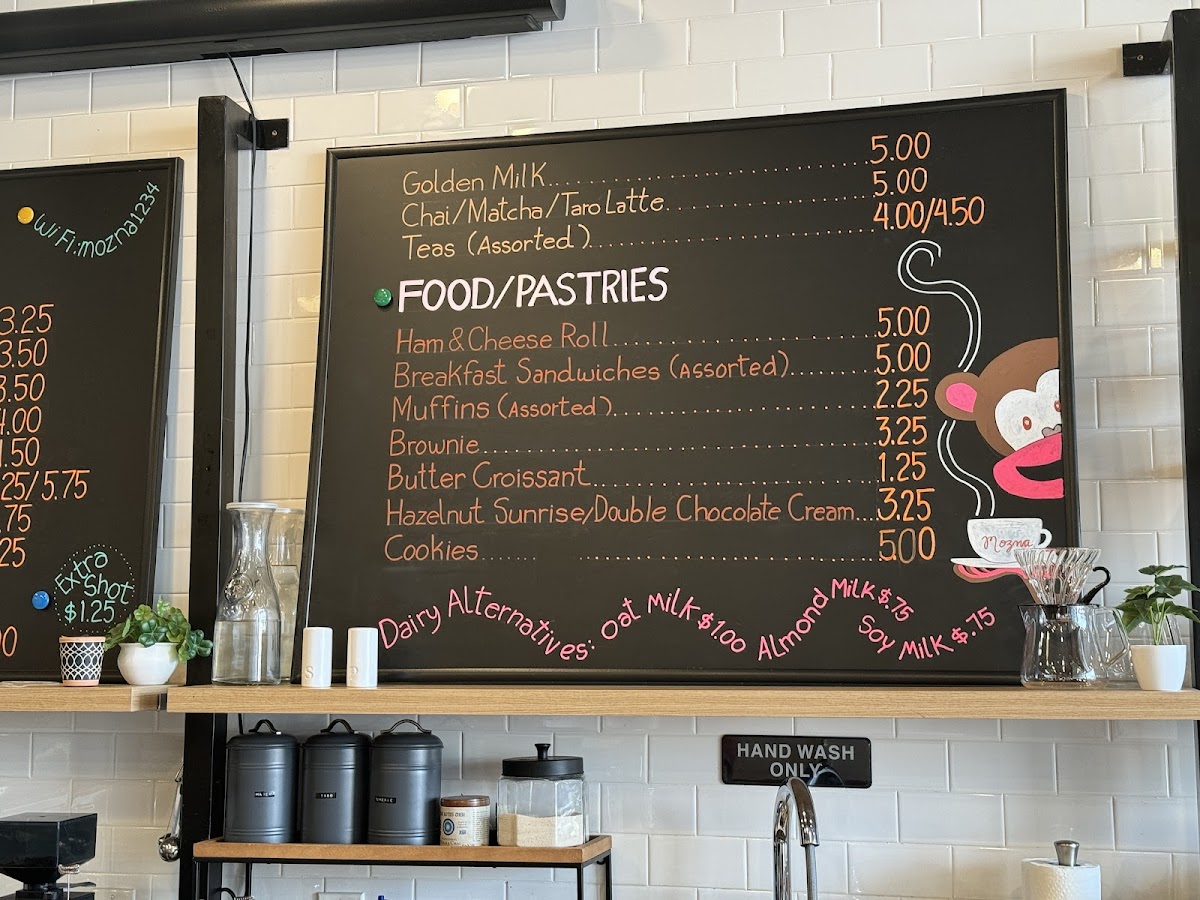 WiFi:mozna1234
3.25
3.50
3.50
4.00
1.50
25/5.75
.75
25
Extra
Shot
$1.25
Golden Milk 5.00
Chai/Matcha/Taro Latte 5.00
Teas (Assorted) 4.00/4.50
FOOD/PASTRIES
Ham & Cheese Roll 5.00
Breakfast Sandwiches (Assorted) 5.00
Muffins (Assorted) 2.25
Brownie 3.25
Butter Croissant 1.25
Hazelnut Sunrise/Double Chocolate Cream 3.25
Cookies 5.00
Mozna
Dairy Alternatives: Oat Milk $1.00 Almond Milk $.75
Soy Milk $.75
S P
HAND WASH
ONLY